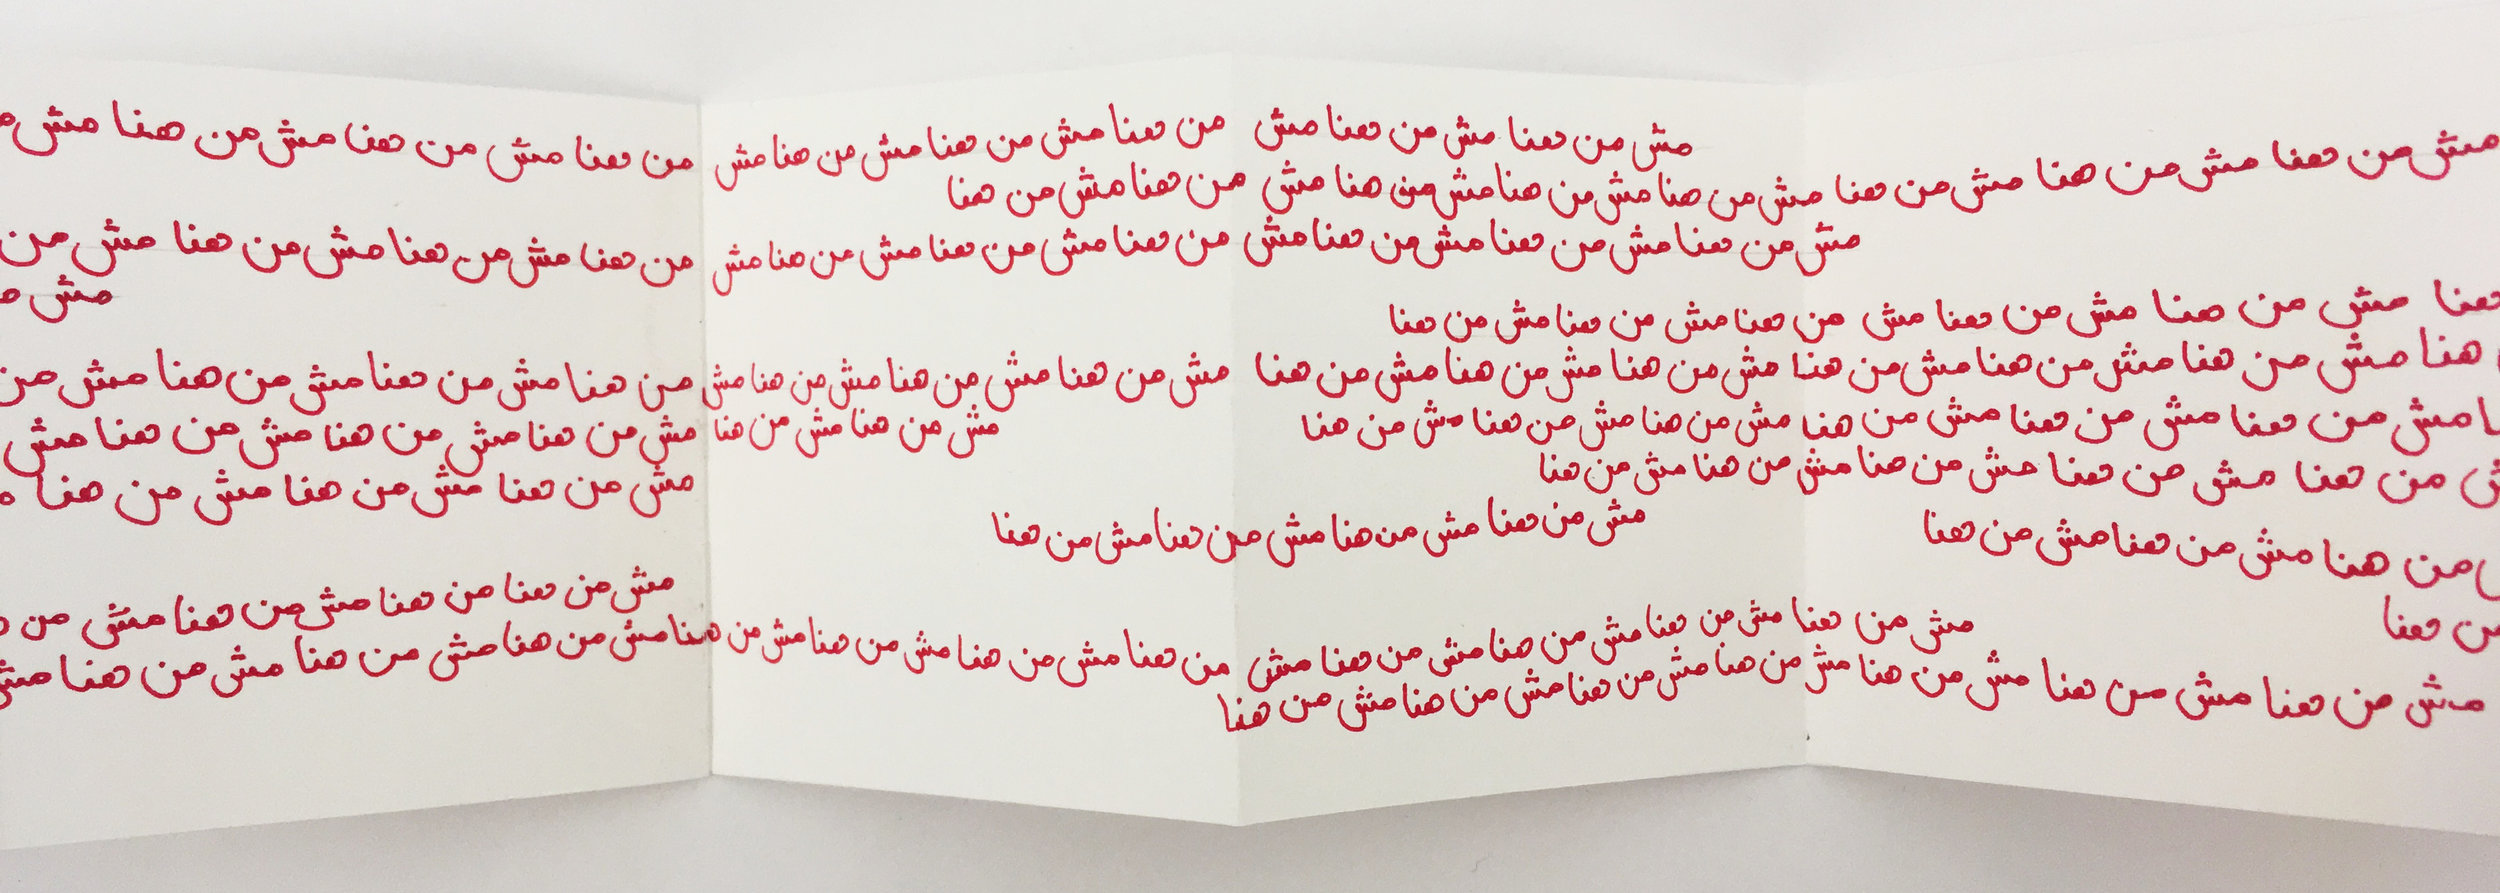 مش من هنا مش من هنا مش من هنا مش من هنا مش من هنا مش من هنا مش من هنا مش من هنا مش
مش من هنا مش من هنا مش من هنا مش من هنا مش من هنا مش من هنا مش من هنا مش من هنا
مش من هنا مش من هنا مش من هنا مش من هنا مش من هنا مش من هنا مش من هنا مش من هنا مش من هنا مش من
هنا مش من هنا مش من هنا مش من هنا مش من هنا مش من هنا
مش
هنا مش من هنا مش من هنا مش من هنا مش من هنا مش من هنا مش من هنا مش من هنا مش من هنا مش من هنا مش من هنا مش من هنا مش من
مش من هنا مش من هنا مش من هنا مش من هنا مش من هنا من هنا
مش من هنا مش من هنا مش من هنا مش من هنا مش من هنا مش
من هنا مش من هنا مش من هنا مش من هنا مش من هنا
مش من هنا مش من هنا مش من هنا
من هنا مش من هنا مش من هنا
مش من هنا مش من هنا مش من هنا مش من هنا
من هنا
مش من هنا مش من هنا مش من هنا مش من هنا مش من هنا مش من هنا مش من هنا مش من هنا مش من هنا مش من هنا مش من هنا مش
مش من هنا من هنا مش من هنا مش من
مش من هنا مش من هنا مش من هنا مش من هنا مش من هنا مش من هنا مش من هنا